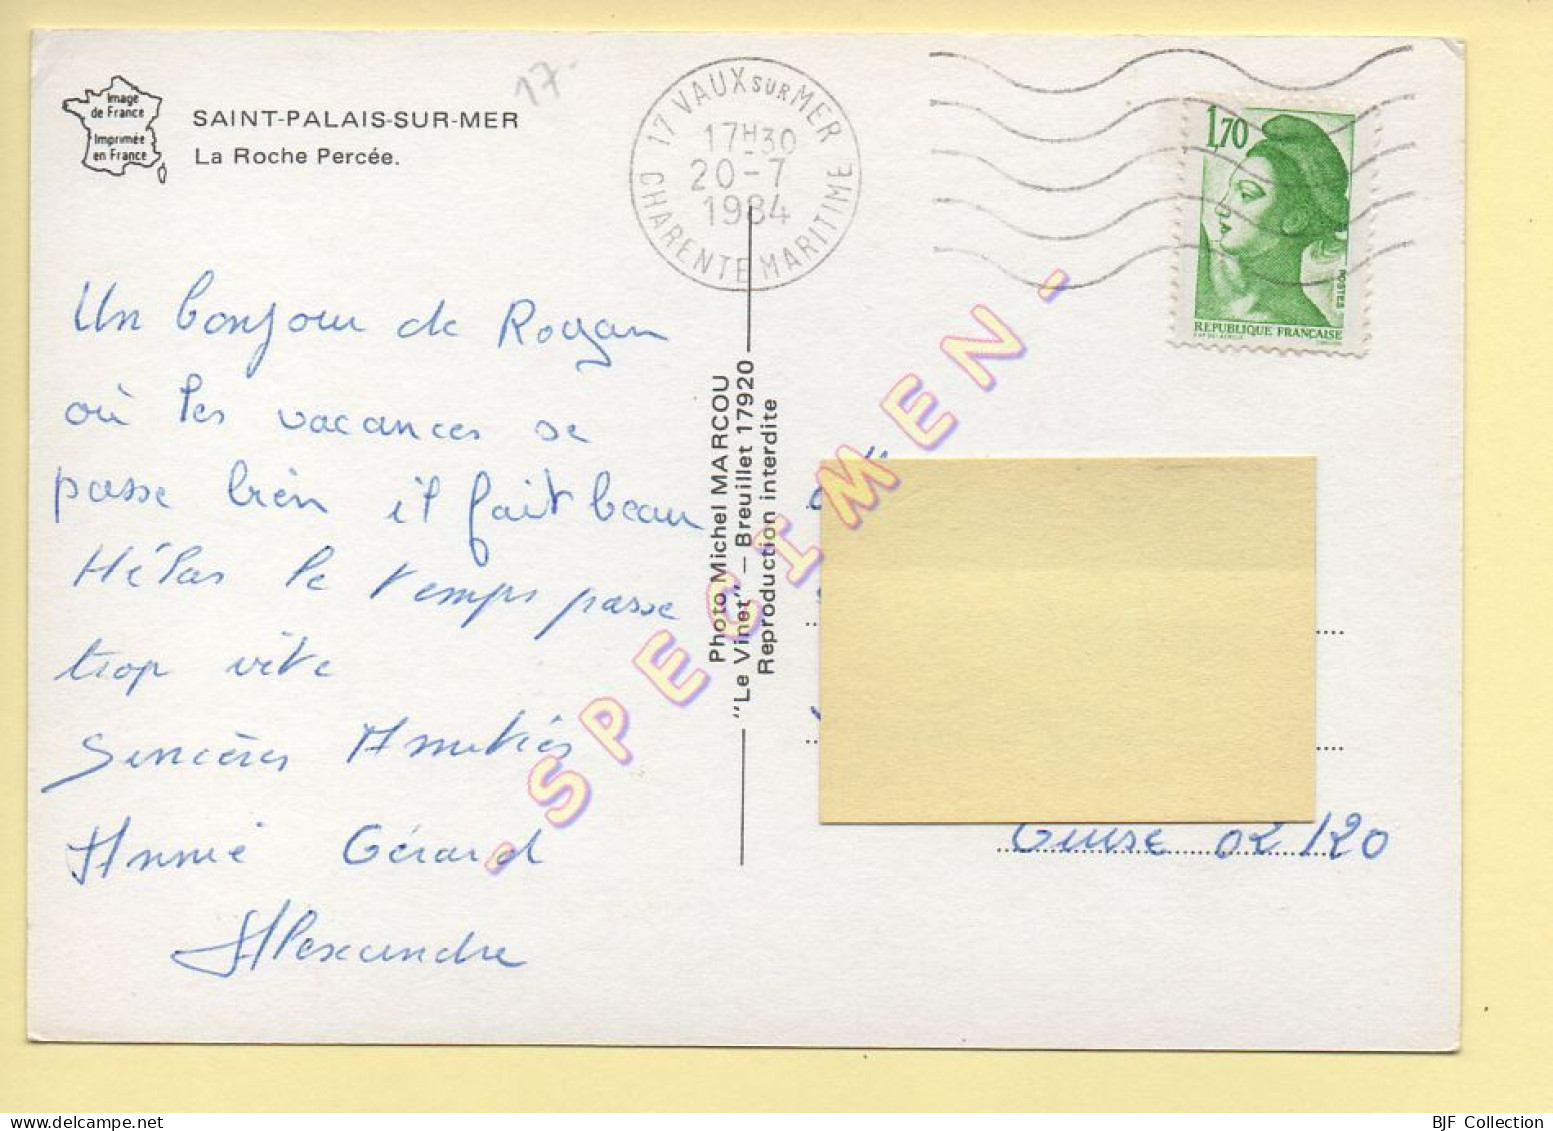 Image
de France
Imprimée
en France
SAINT-PALAIS-SUR-MER
La Roche Percée.
17-
17 VAUX SUR MER
17H30
20-7
1984
CHARENTE MARITIME
1,70
POSTES
REPUBLIQUE FRANÇAISE
Un bonjour de Royan
où les vacances se
passe bien il fait beau
Hélas le temps passe
trop vite
Sincères Amitiés
Annie Gérard
Alexandre
Photo Michel MARCOU
"Le Vinet" – Breuillet 17920
Reproduction interdite
- SPECIMEN -
Guise 02120
BJF Collection